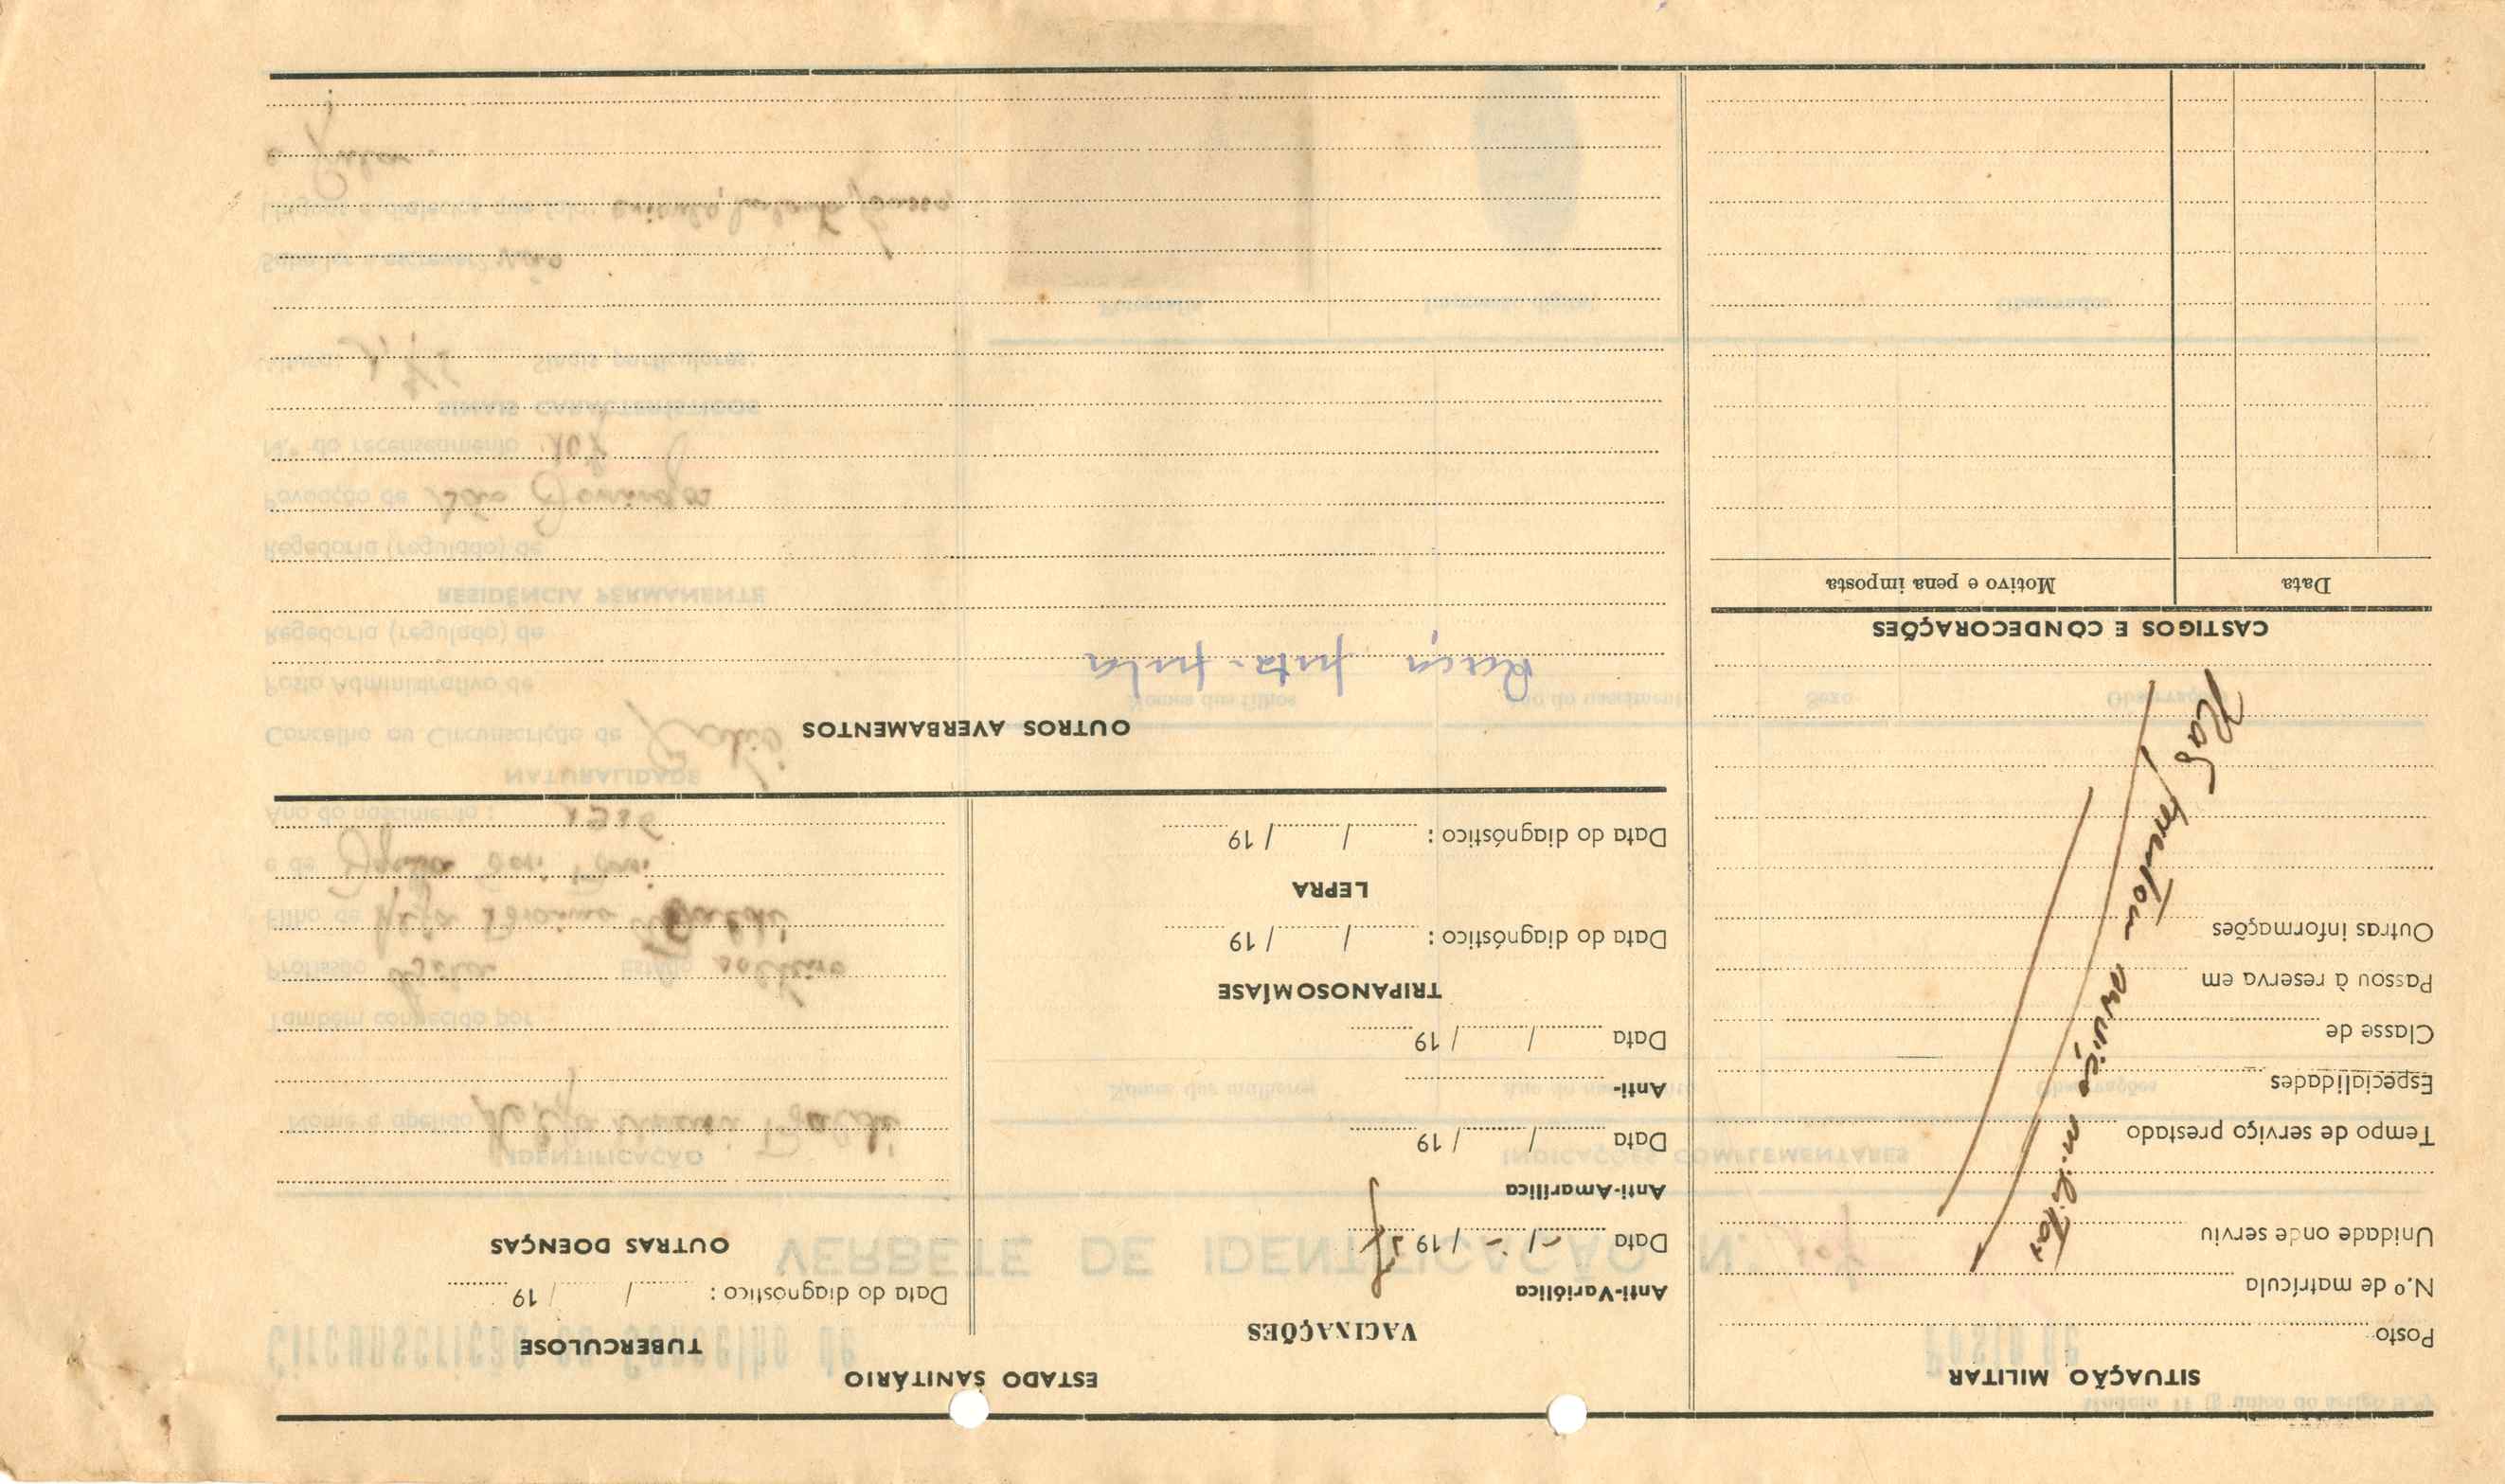 SITUAÇÃO MILITAR
Posto
N.º de matrícula
Unidade onde serviu
Tempo de serviço prestado
Especialidades
Classe de
Passou à reserva em
Outras informações
Não prestou serviço militar
CASTIGOS E CONDECORAÇÕES
Data
Motivo e pena imposta
ESTADO SANITÁRIO
VACINAÇÕES
Anti-Variólica
Data - / - / 19
Anti-Amarílica
Data / / 19
Anti-
Data / / 19
TRIPANOSOMÍASE
Data do diagnóstico: / / 19
LEPRA
Data do diagnóstico: / / 19
TUBERCULOSE
Data do diagnóstico: / / 19
OUTRAS DOENÇAS
OUTROS AVERBAMENTOS
Raça futa-fula